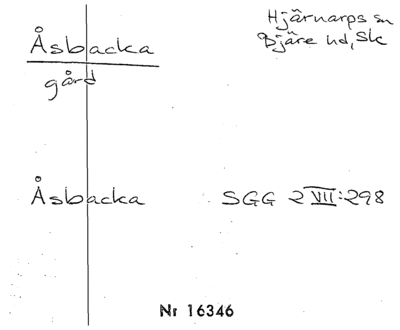 Åsbacka
Hjärnarps sn
Bjäre hd, Sk
gård
Åsbacka SGG 2 VII:298
Nr 16346